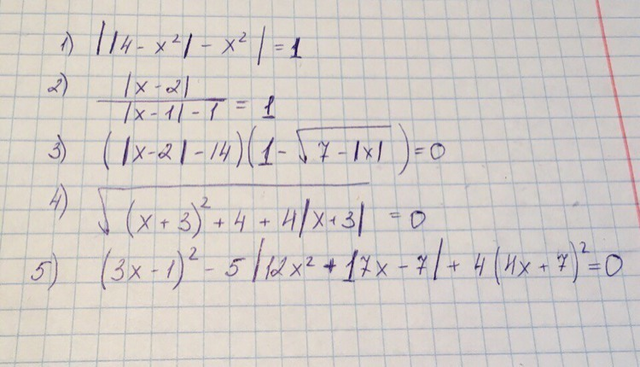 1) ||4 - x²| - x²| = 1
2) |x - 2| / (|x - 1| - 1) = 1
3) (|x - 2| - 14)(1 - √(7 - |x|)) = 0
4) √((x + 3)² + 4 + 4|x + 3|) = 0
5) (3x - 1)² - 5|12x² + 17x - 7| + 4(4x + 7)² = 0